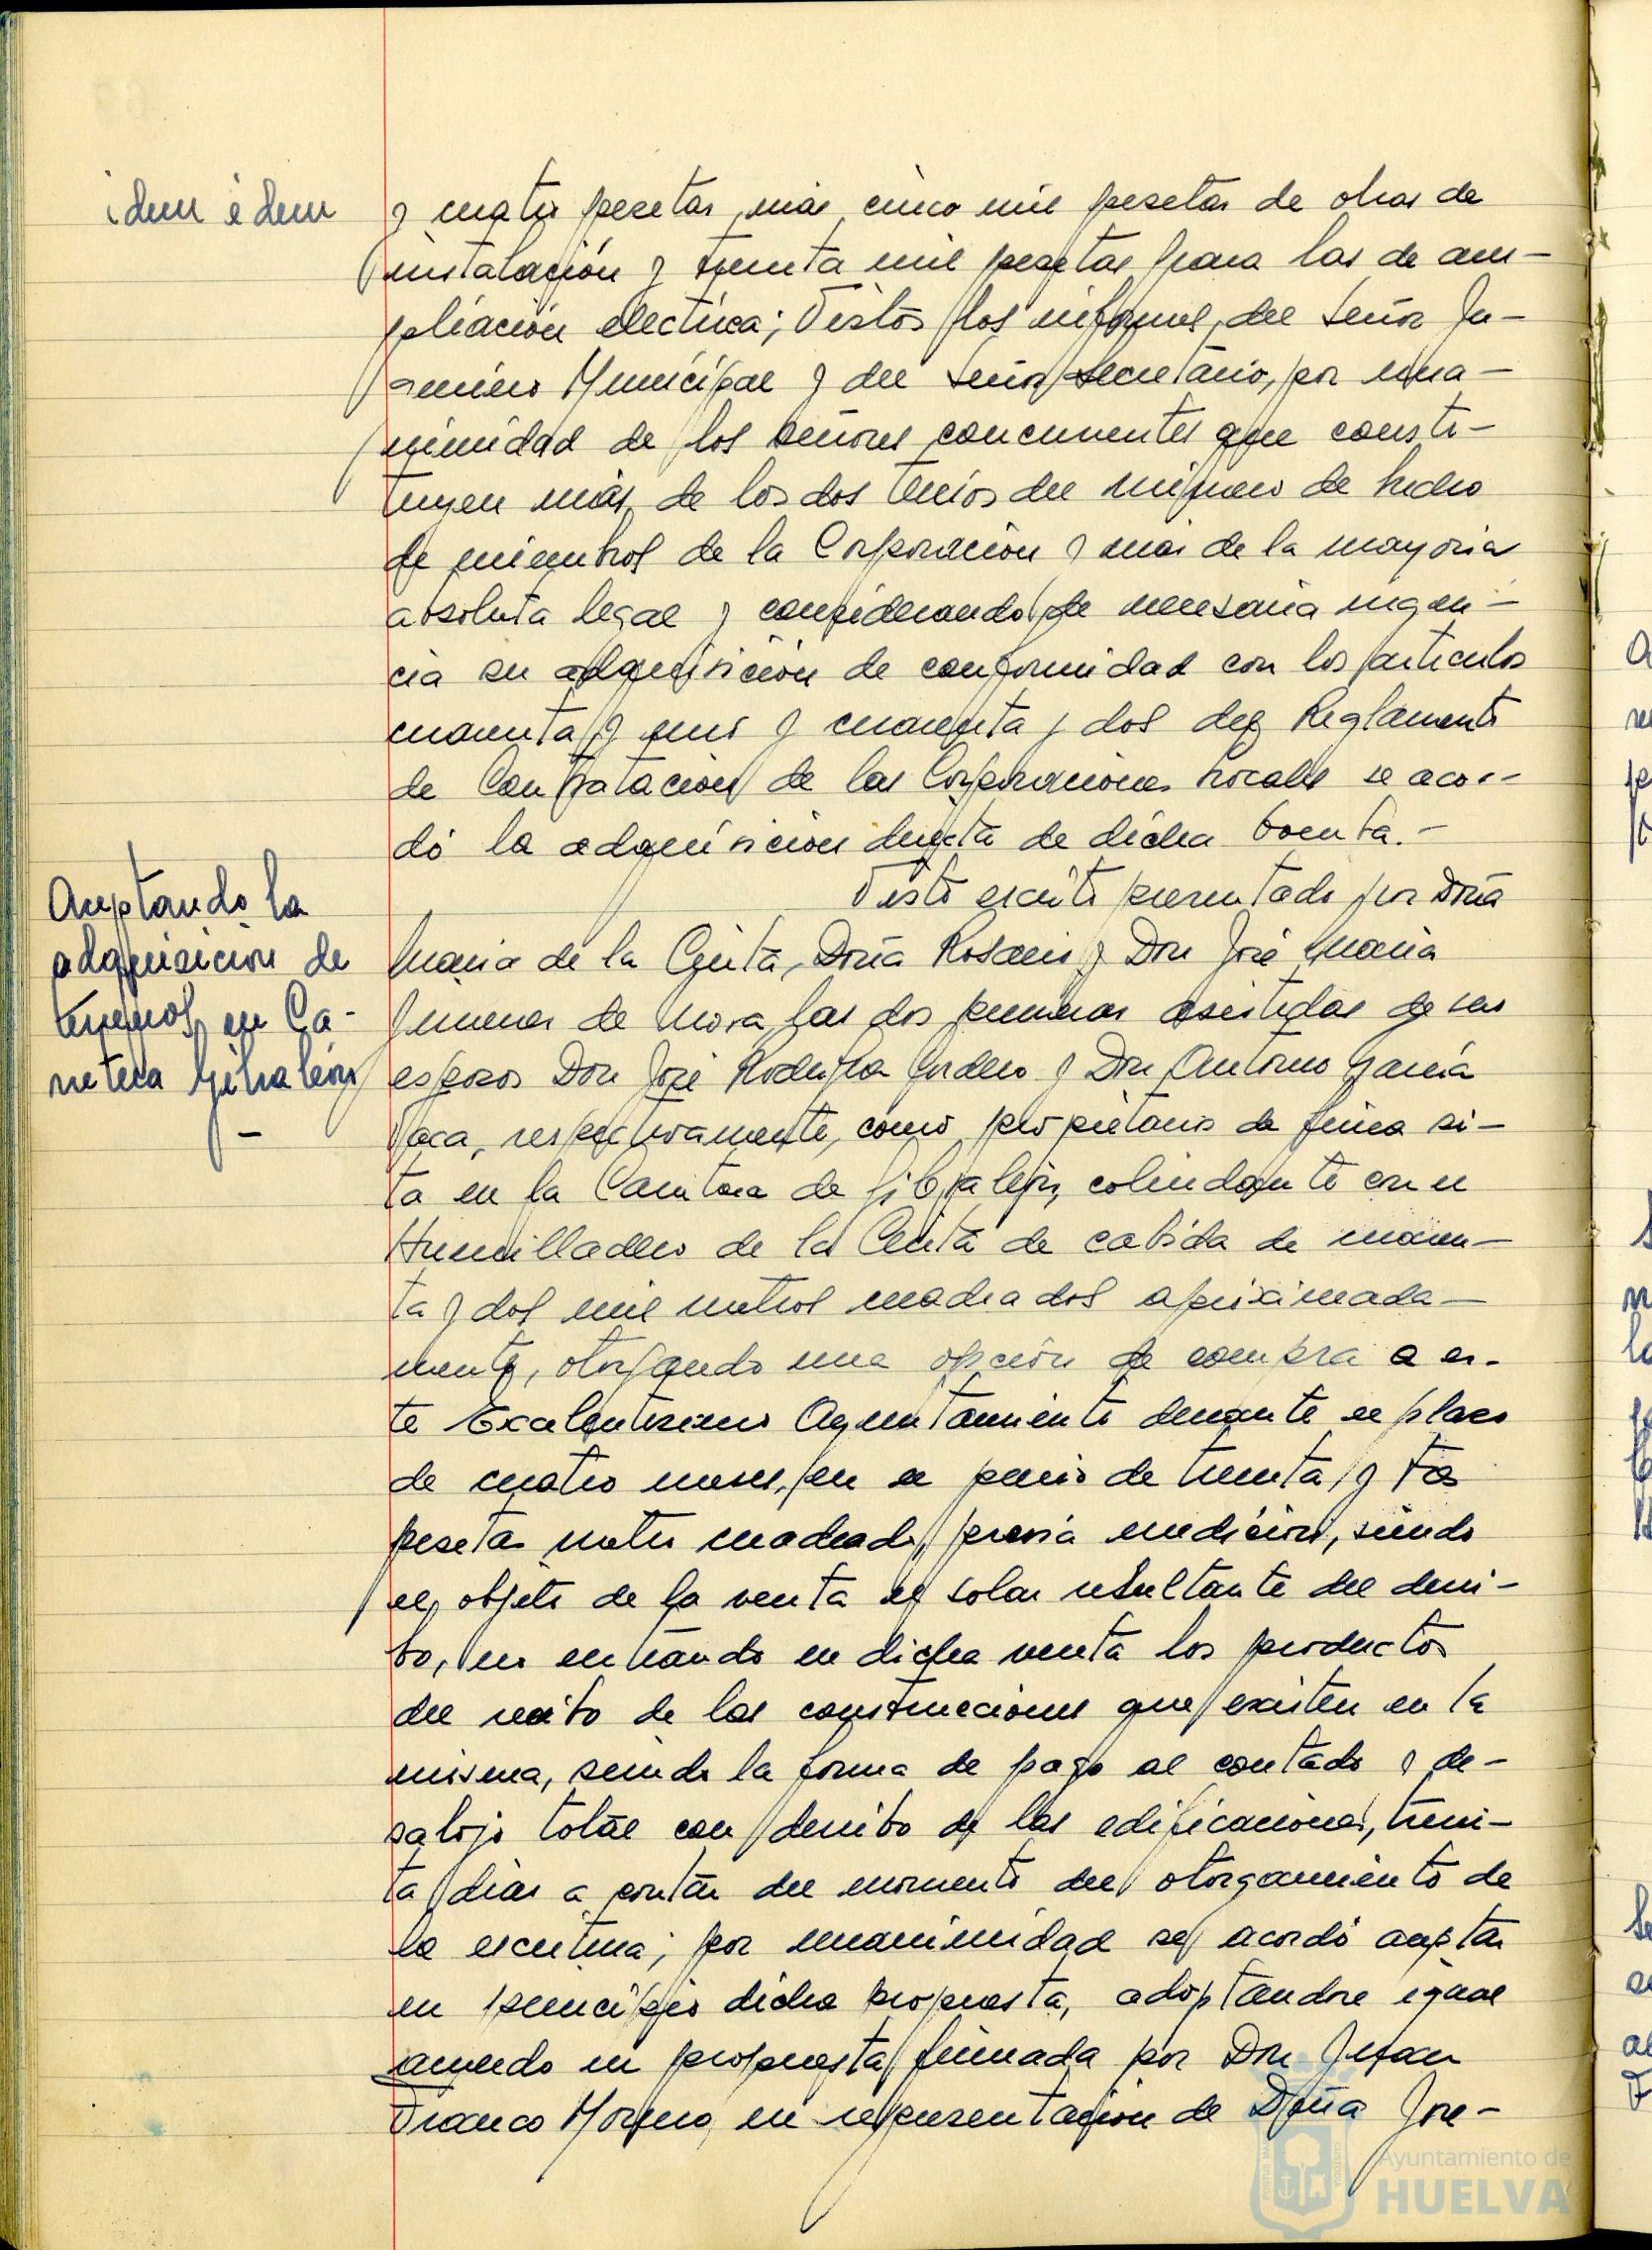 idem idem
y cuatro pesetas, más cinco mil pesetas de obras de
instalación y treinta mil pesetas para las de am-
pliación electrica; Vistos los informes, del Señor In-
geniero Municipal y del Señor Secretario, por una-
nimidad de los señores concurrentes que consti-
tuyen más de los dos tercios del número de hecho
de miembros de la Corporación y más de la mayoria
absoluta legal y considerando de necesaria urgen-
cia su adquisición de conformidad con los articulos
cuarenta y uno y cuarenta y dos del Reglamento
de Contratación de las Corporaciones Locales se acor-
dó la adquisición directa de dicha bomba.-
Aceptando la
adquisición de
terrenos en Ca-
rretera Gibraleón
-
Visto escrito presentado por Doña
Maria de la Cinta, Doña Rosario y Don José Maria
Jimenez de Mora, las dos primeras asistidas de sus
esposos Don José Cordero y Don Antonio García
Vaca, respectivamente, como propietarios de finca si-
ta en la Carretera de Gibraleón, colindante con el
Humilladero de la Cinta de cabida de cuaren-
ta y dos mil metros cuadrados aproximada-
mente, otorgando una opción de compra a es-
te Excelentisimo Ayuntamiento durante el plazo
de cuatro meses, en el precio de treinta y tres
pesetas metro cuadrado, previa medición, siendo
el objeto de la venta el solar resultante del derri-
bo, no entrando en dicha venta los productos
del derribo de las construcciones que existen en la
misma, siendo la forma de pago al contado y de-
salojo total con derribo de las edificaciones, trein-
ta dias a contar del momento del otorgamiento de
la escritura; por unanimidad se acordó aceptar
en principio dicha propuesta, adoptandose igual
acuerdo en propuesta firmada por Don Juan
Franco Moreno, en representación de Doña Jose-
Ayuntamiento de
HUELVA